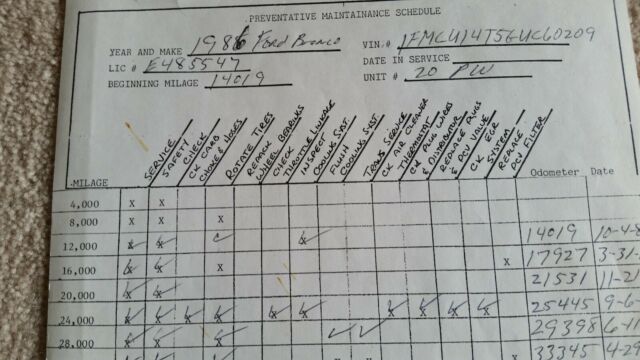 PREVENTATIVE MAINTAINANCE SCHEDULE
YEAR AND MAKE 1986 Ford Bronco
VIN. # 1FMCU14T5GUC60209
LIC # E485547
DATE IN SERVICE
BEGINNING MILAGE 14019
UNIT # 20 PW
SERVICE
SAFETY CHECK
CK CARB CHOKE & HOSES
ROTATE TIRES
REPACK WHEEL BEARINGS
CHECK THROTTLE LINKAGE
INSPECT COOLING SYST.
FLUSH COOLING SYST
TRANS SERVICE
CK AIR CLEANER
THERMOSTAT
CK PLUG WIRES & DISTRIBUTOR
REPLACE PLUGS & PCV VALVE
CK EGR SYSTEM
REPLACE PCV FILTER
MILAGE Odometer Date
4,000 X X
8,000 X X X
12,000 X X X 14019 10-4-8
16,000 X X X X 17927 3-31-
20,000 X X 21531 11-2
24,000 X X X X X X X X X X 25445 9-6-
28,000 X X X 29398 6-1
X X X X 33345 4-29